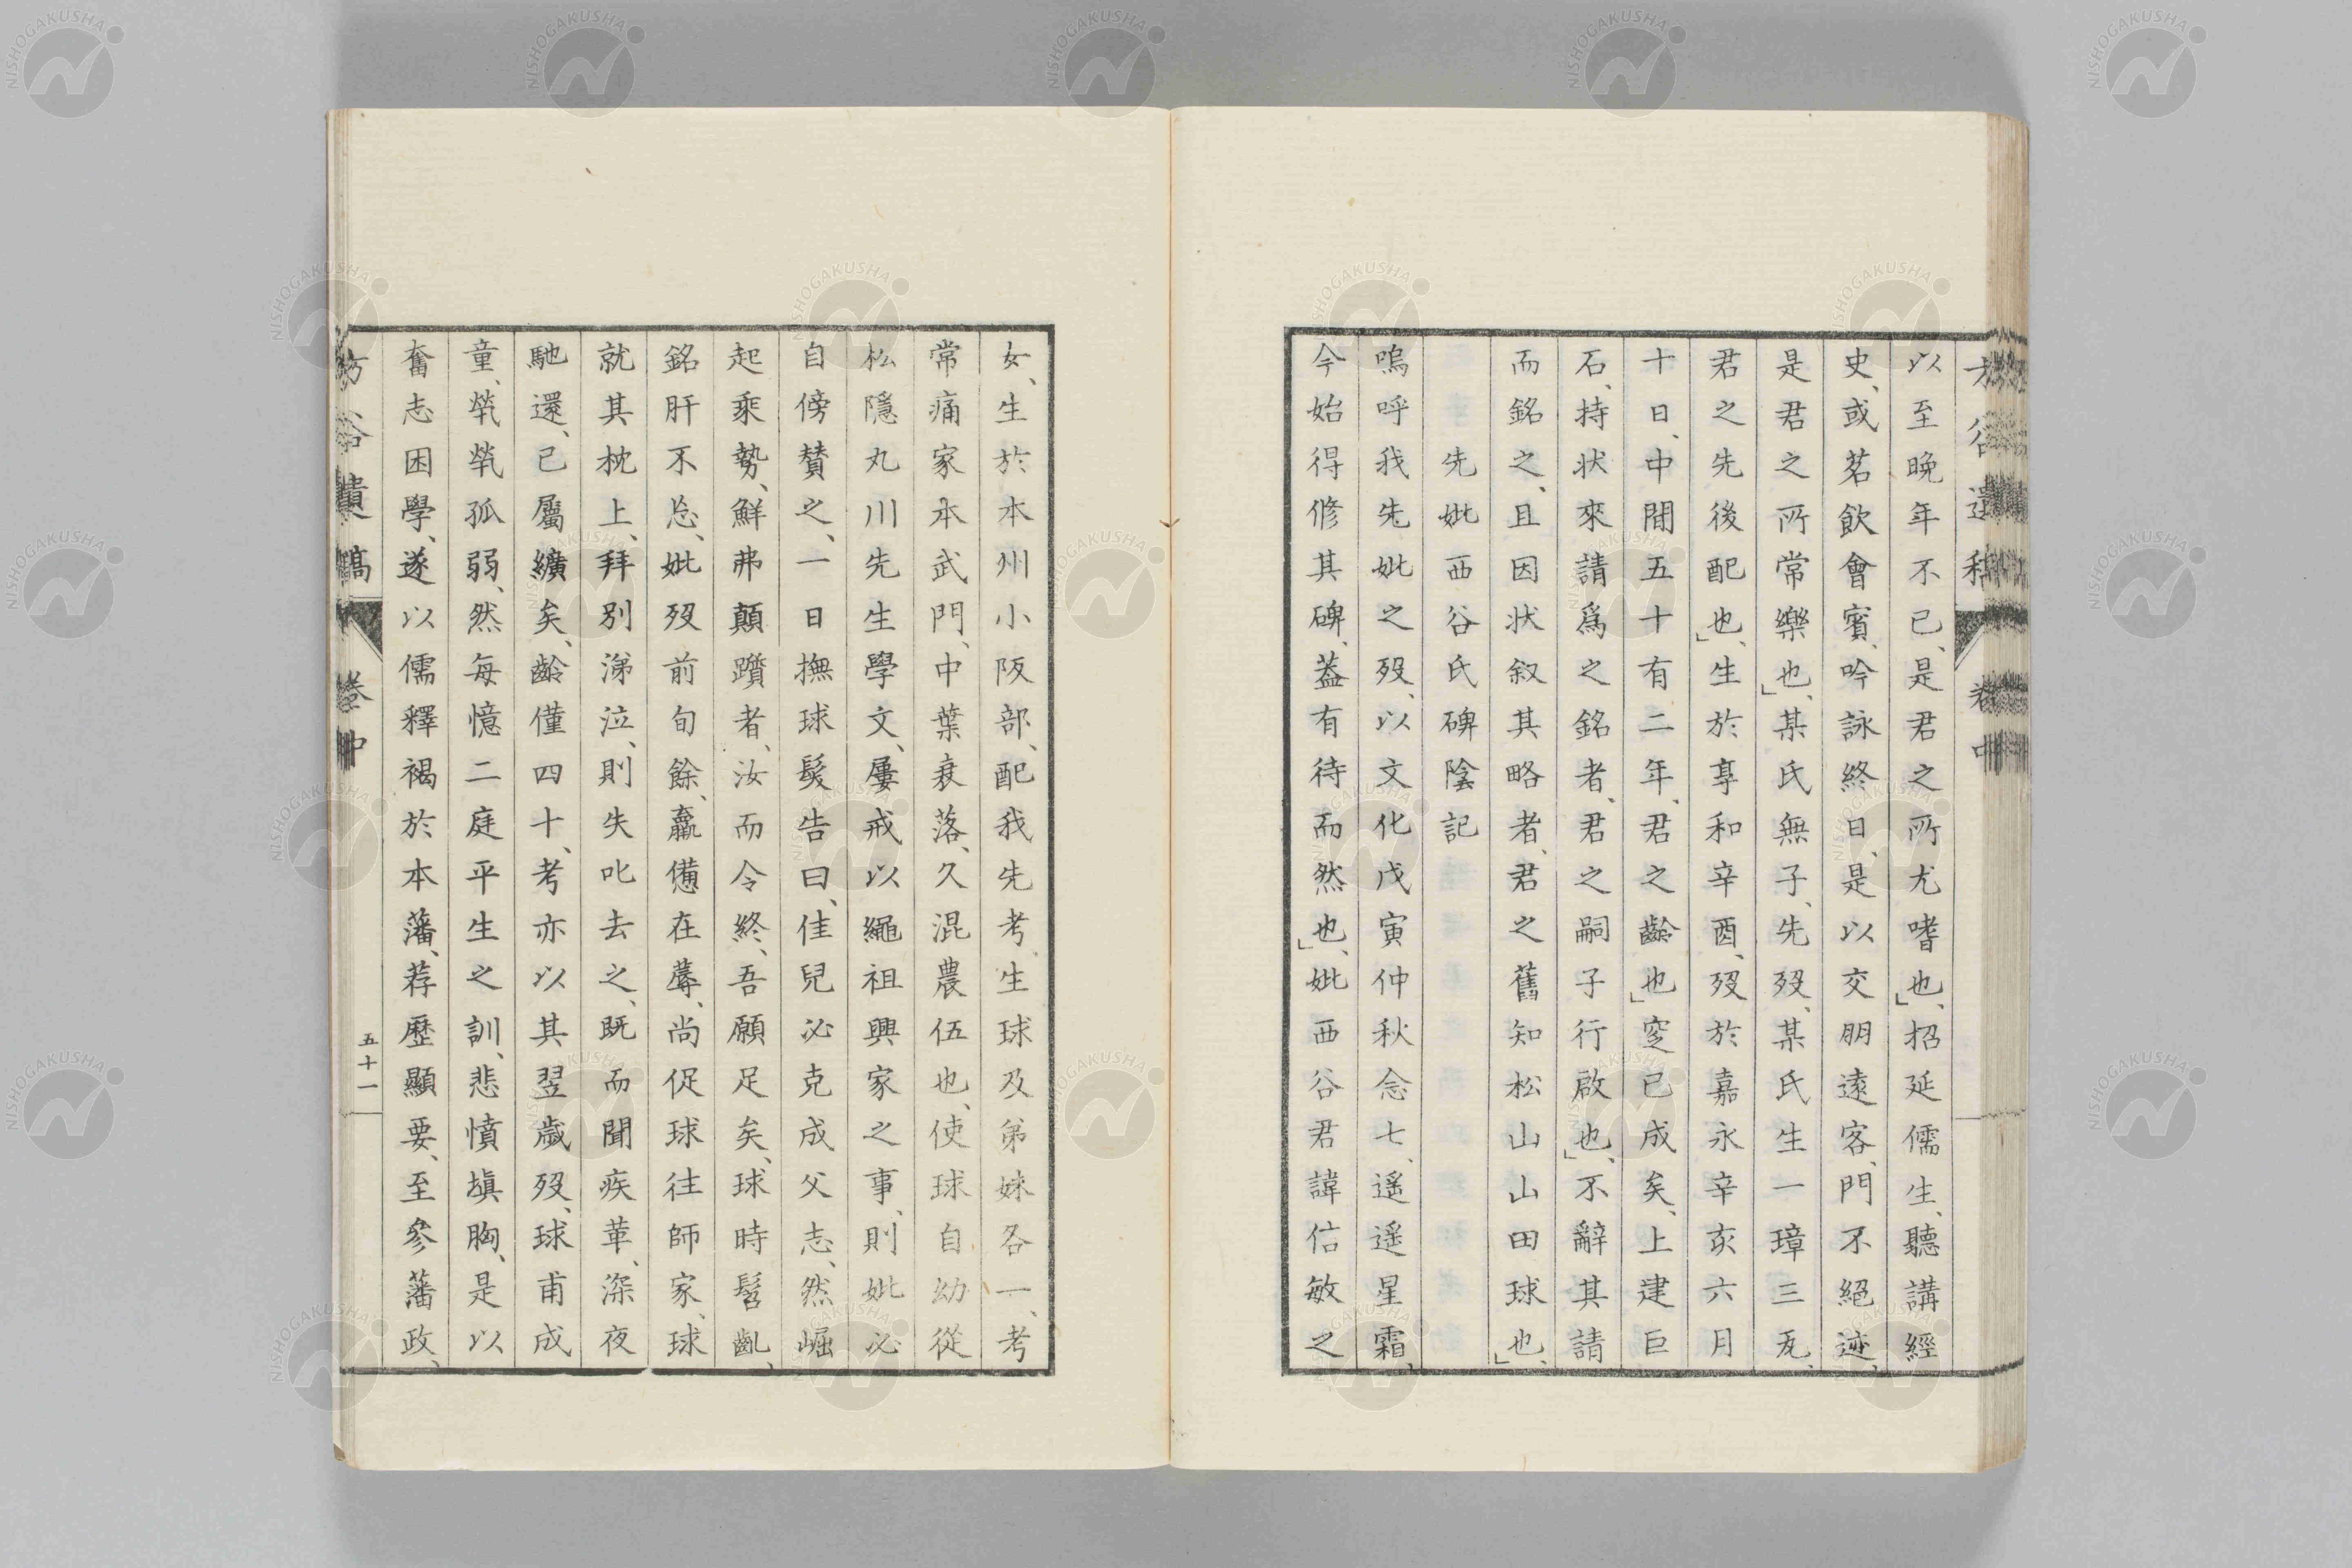 以至晩年不已、是君之所尤嗜也」、招延儒生、聽講經
史、或茗飲會賓、吟詠終日、是以交朋遠客、門不絕迹、
是君之所常樂也」、某氏無子、先歿、某氏生一璋三瓦、
君之先後配也」、生於享和辛酉、歿於嘉永辛亥六月
十日、中間五十有二年、君之齡也」窆已成矣、上建巨
石、持状來請爲之銘者、君之嗣子行啟也」、不辭其請
而銘之、且因状叙其略者、君之舊知松山山田球也」、
先妣西谷氏碑陰記
嗚呼我先妣之歿、以文化戊寅仲秋念七、遥遥星霜、
今始得修其碑、蓋有待而然也」、妣西谷君諱信敏之
女、生於本州小阪部、配我先考、生球及弟妹各一、考
常痛家本武門、中葉衰落、久混農伍也、使球自幼從
松隱丸川先生學文、屢戒以繩祖興家之事、則妣必
自傍賛之、一日撫球髮告曰、佳兒必克成父志、然崛
起乘勢、鮮弗顛躓者、汝而令終、吾願足矣、球時髫齓、
銘肝不忘、妣歿前旬餘、羸憊在蓐、尚促球往師家、球
就其枕上、拜別涕泣、則失叱去之、既而聞疾革、深夜
馳還、已屬纊矣、齡僅四十、考亦以其翌歲歿、球甫成
童、煢煢孤弱、然每憶二庭平生之訓、悲憤塡胸、是以
奮志困學、遂以儒釋褐於本藩、荐歷顯要、至參藩政、
谷遺稿 卷中
五十一
NISHOGAKUSHA